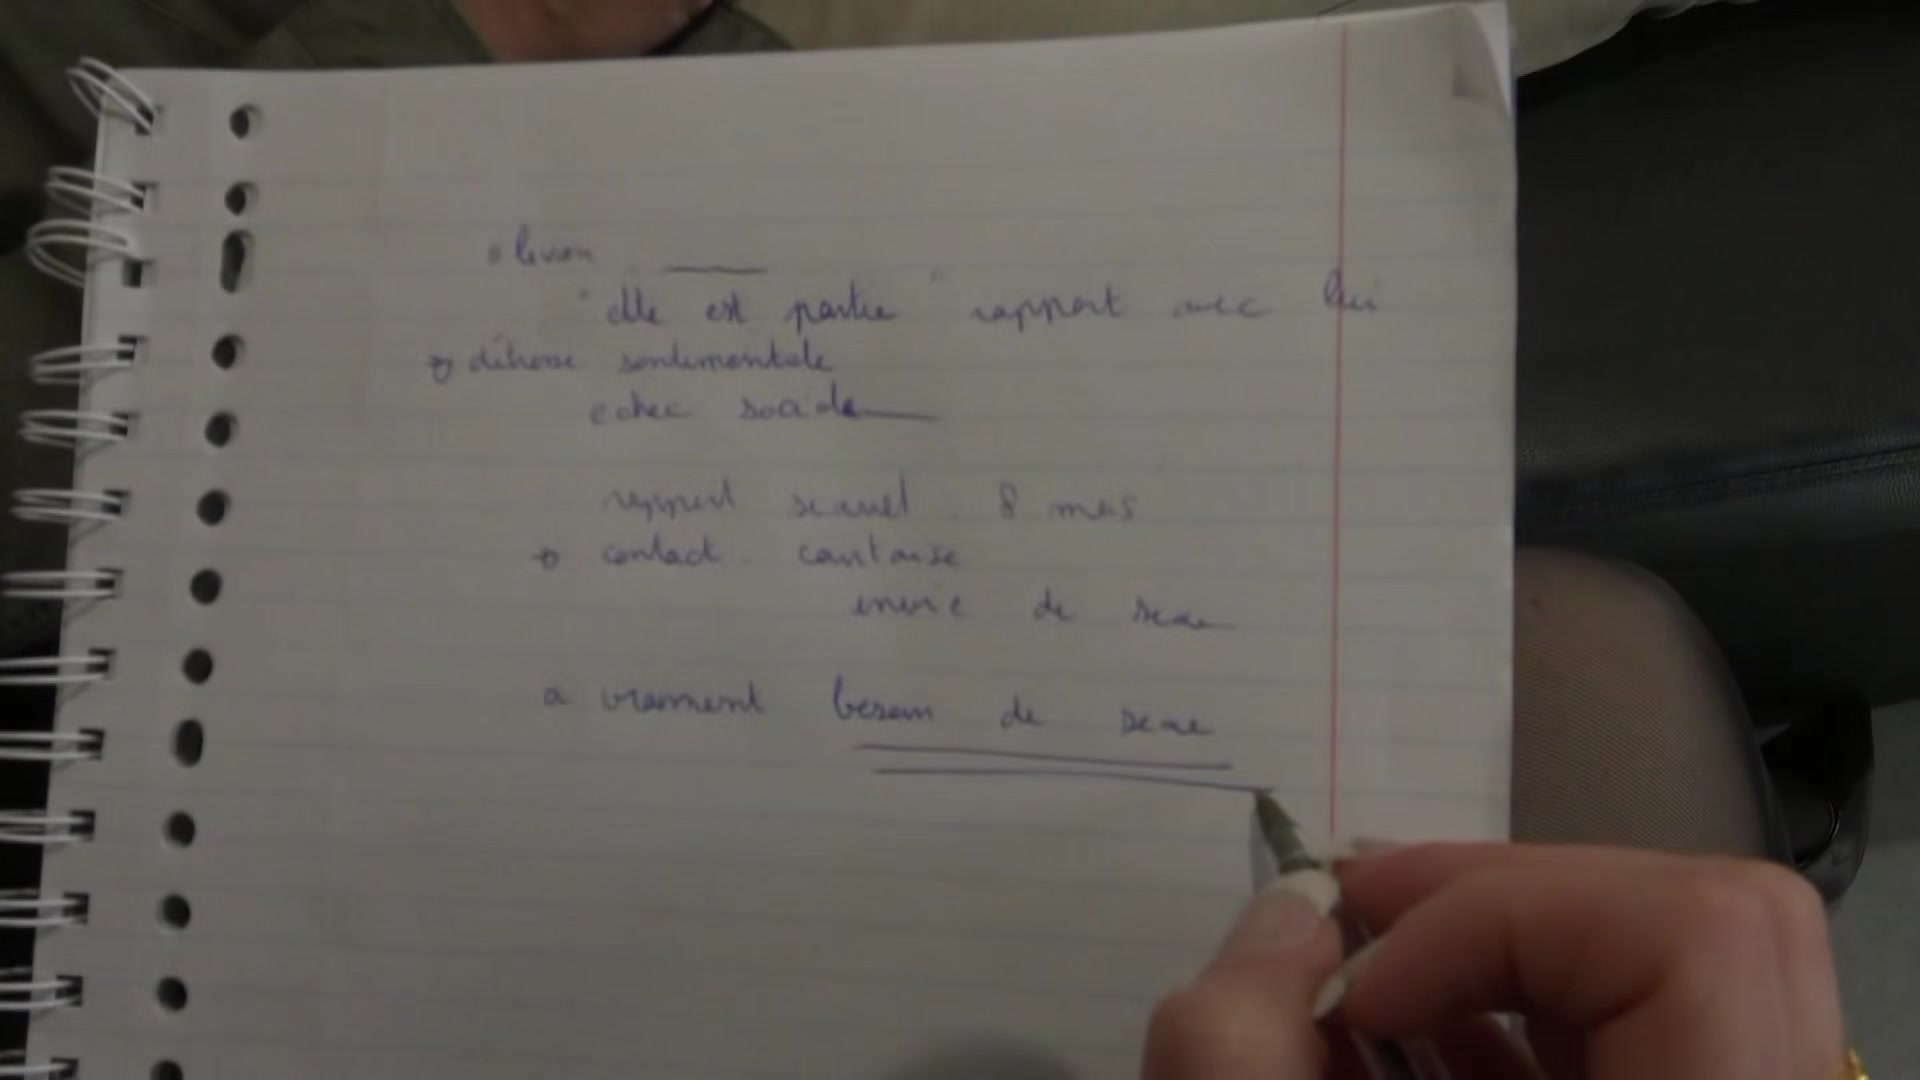 "elle est partie" rapport avec lui
détresse sentimentale
echec sociale
rapport sexuel 8 mois
contact
envie de sexe
a vraiment besoin de sexe